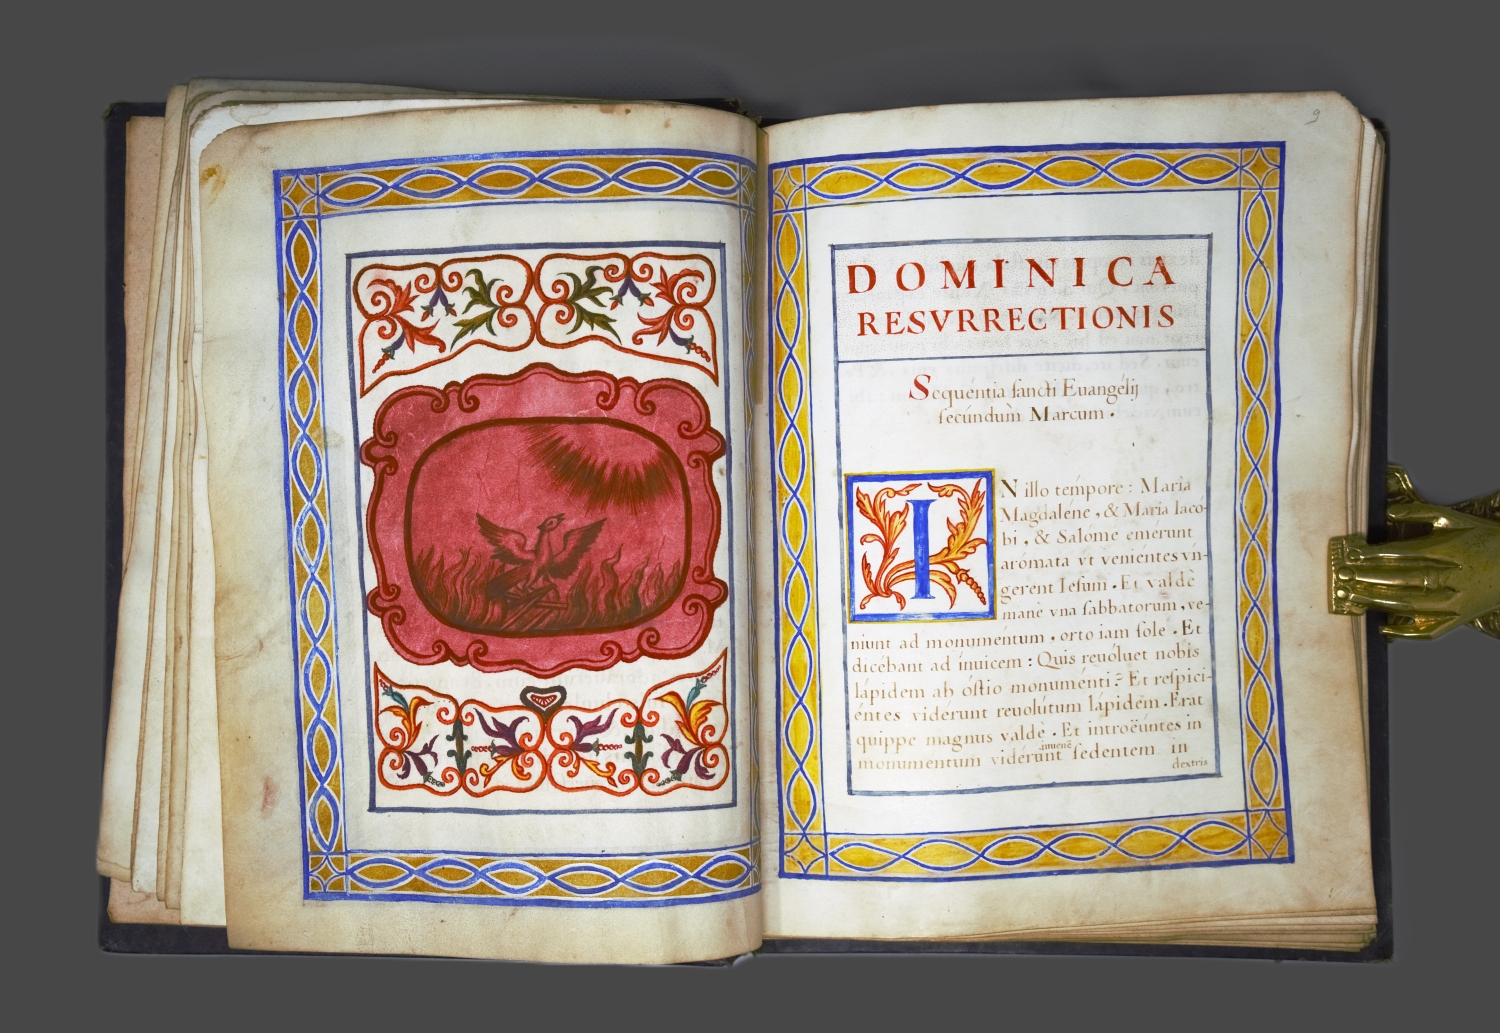 9
DOMINICA
RESVRRECTIONIS
Sequéntia ſancti Euangélij
ſecúndum Marcum.
IN illo témpore: Maria
Magdaléne, & Maria Iacó-
bi, & Salóme emérunt
arómata vt veniéntes vn-
gerent Ieſum. Et valdè
manè vna ſabbatorum, ve-
niunt ad monuméntum, orto iam ſole. Et
dicébant ad ínuicem: Quis reuóluet nobis
lápidem ab óſtio monuménti? Et reſpici-
éntes vidérunt reuolútum lápidem. Erat
quippe magnus valdè. Et introëúntes in
monumentum vidérunt iuuenē ſedentem in
dextris